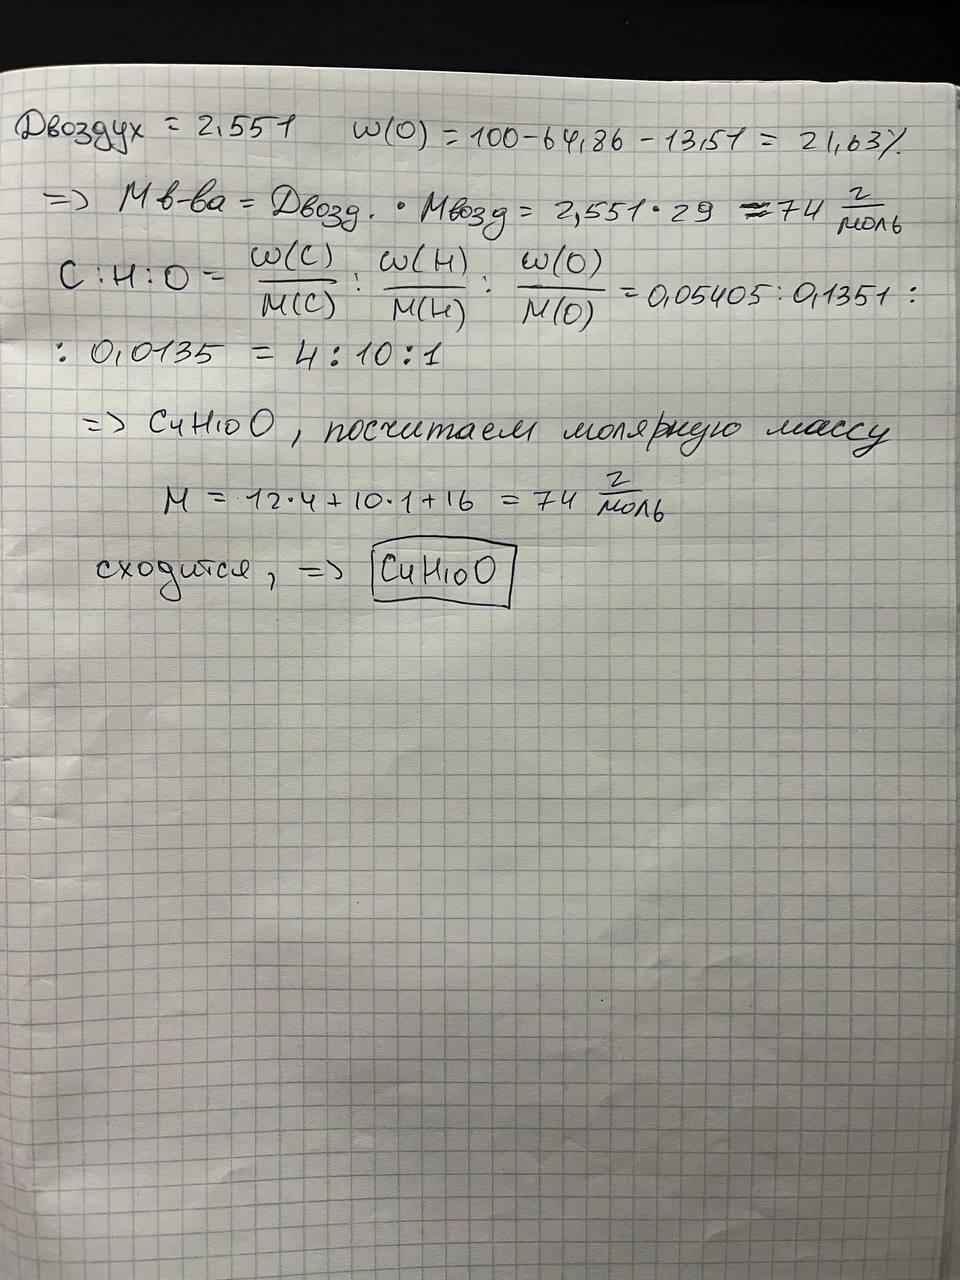 Dвоздух = 2,551 ω(O) = 100-64,86-13,51 = 21,63%
=> M в-ва = Dвозд. · Mвозд = 2,551·29 ≈ 74 г/моль
C:H:O = ω(C)/M(C) : ω(H)/M(H) : ω(O)/M(O) = 0,05405 : 0,1351 :
: 0,0135 = 4:10:1
=> C4H10O, посчитаем молярную массу
M = 12·4+10·1+16 = 74 г/моль
сходится, => C4H10O